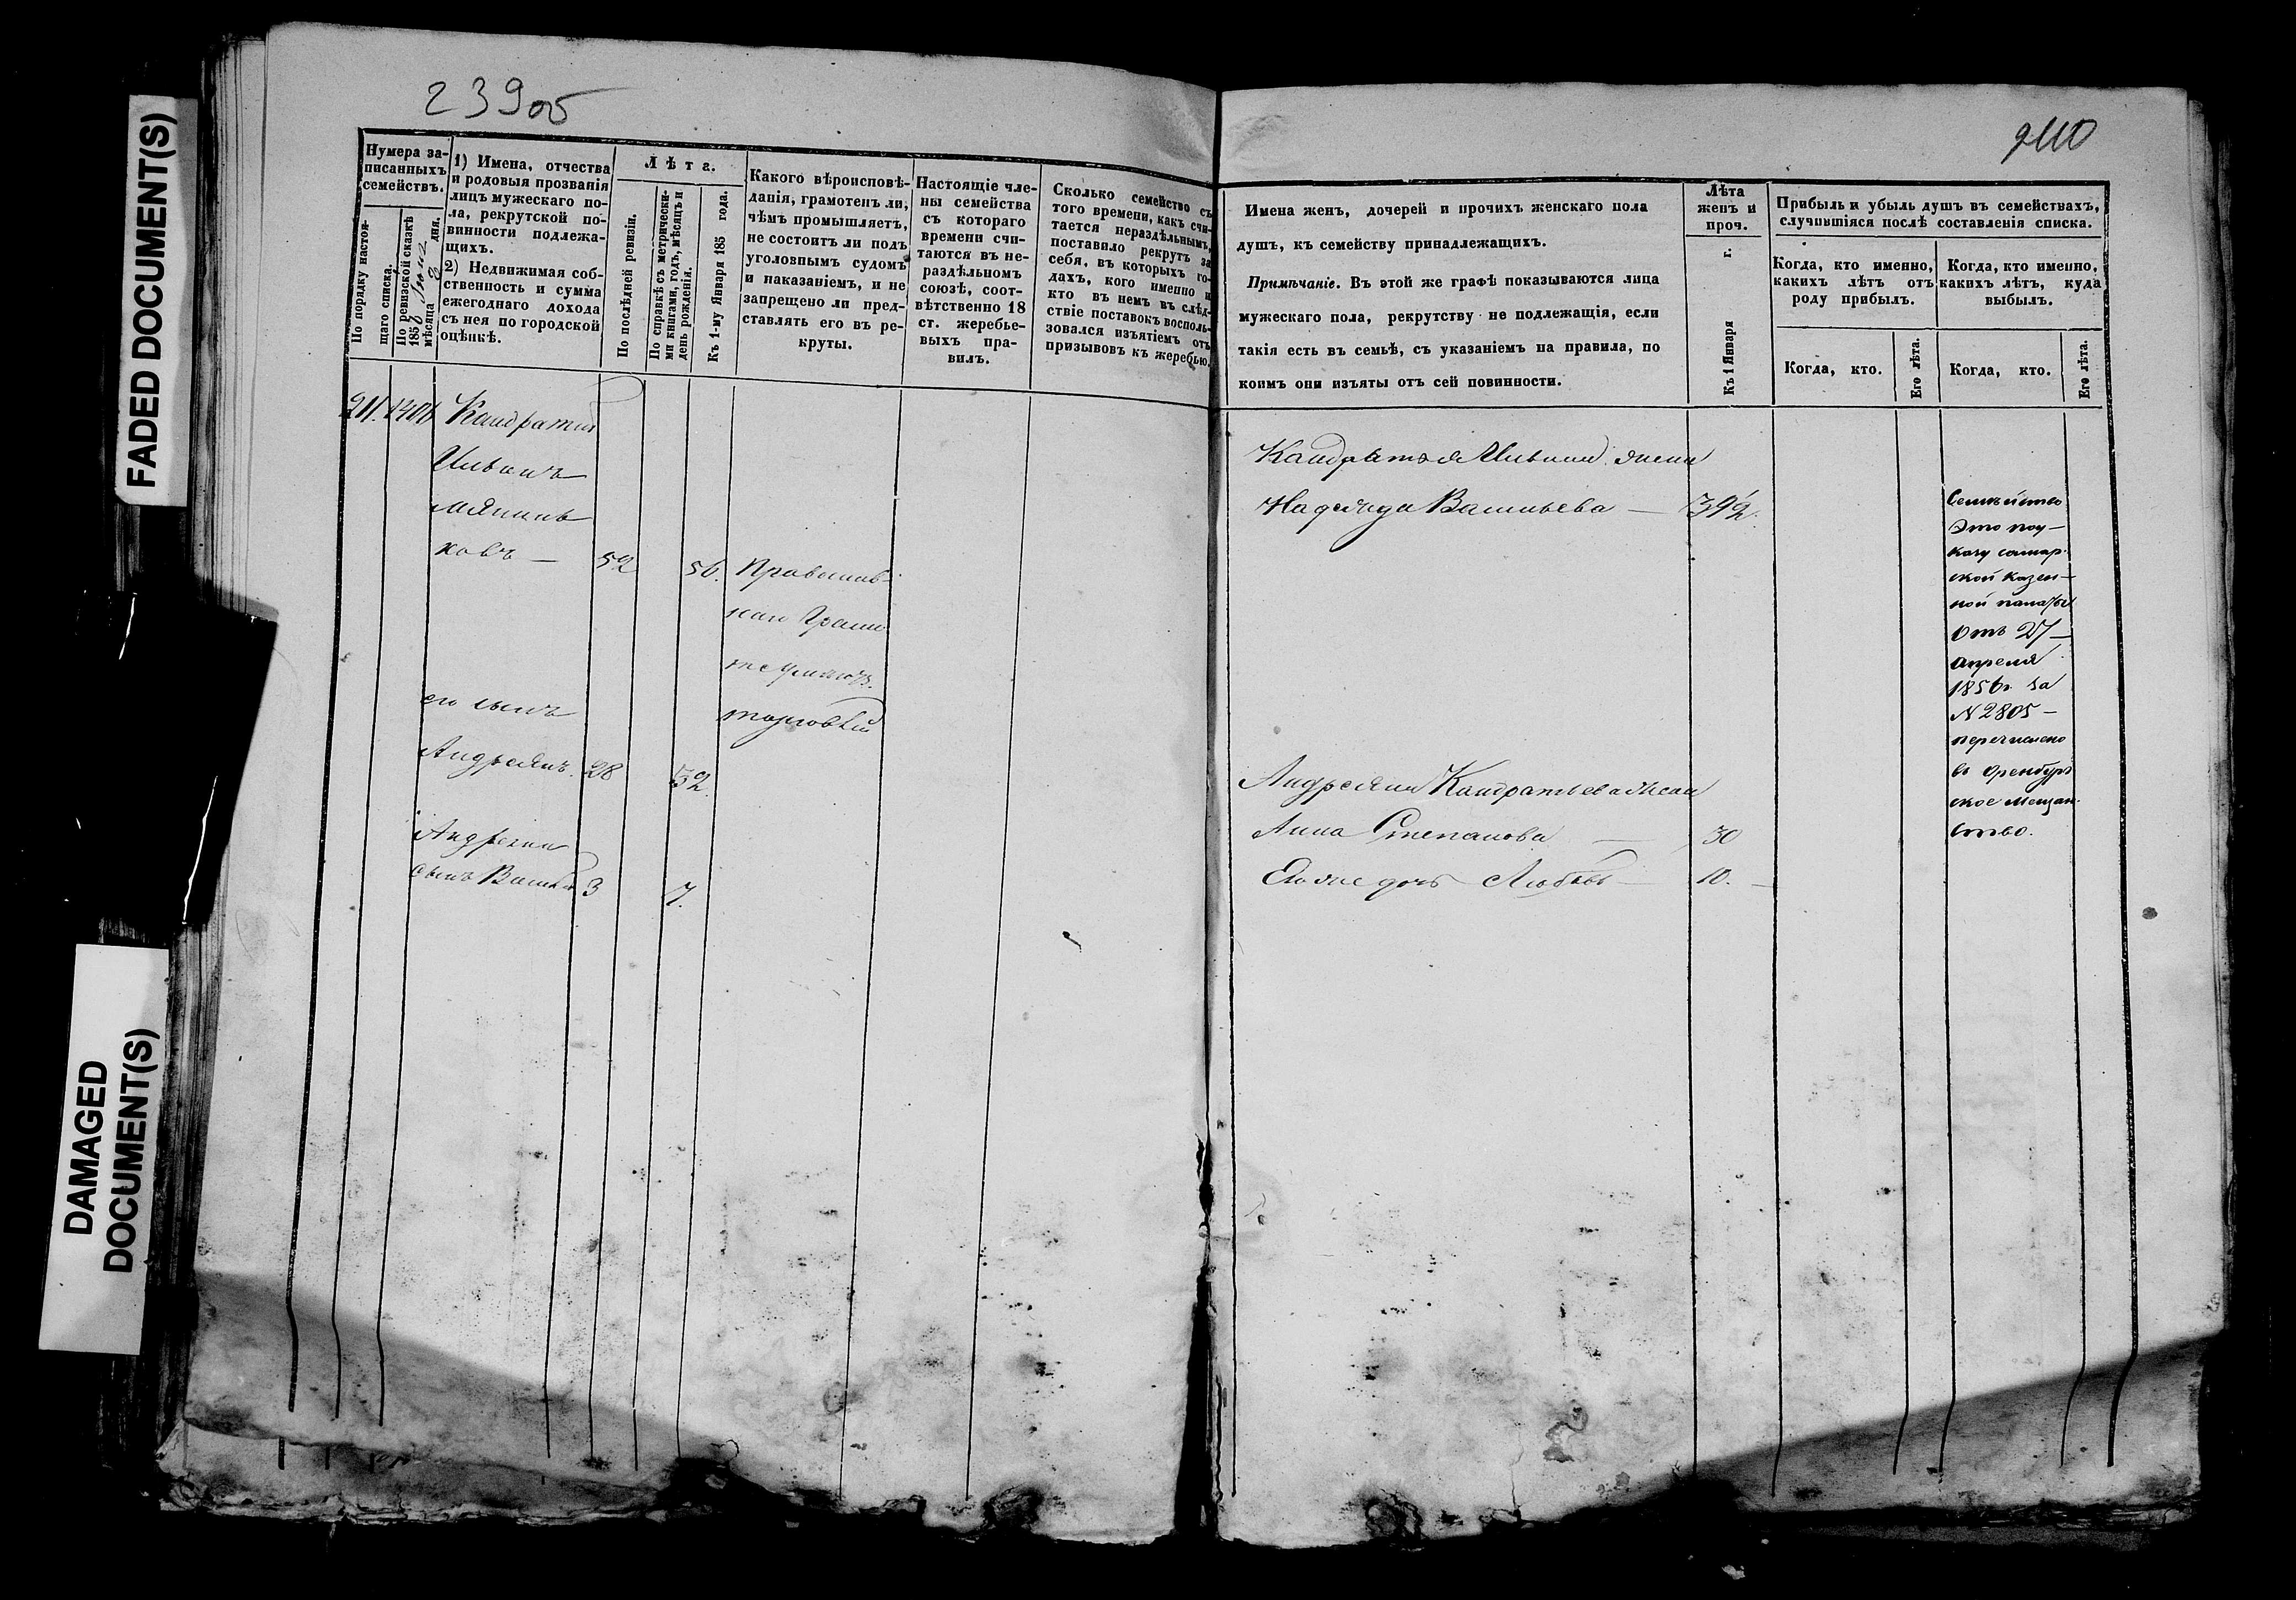 FADED DOCUMENT(S)
DAMAGED
DOCUMENT(S)
239об
Нумера за-
писанныхъ
семействъ.
По порядку настоя-
щаго списка.
По ревизской сказкѣ
185
мѣсяца
дня.
1) Имена, отчества
и родовыя прозванія
лицъ мужескаго по-
ла, рекрутской по-
винности подлежа-
щихъ.
2) Недвижимая соб-
ственность и сумма
ежегоднаго дохода
съ нея по городской
оцѣнкѣ.
Лѣта.
По послѣдней ревизіи.
По справкѣ съ метрически-
ми книгами, годъ, мѣсяцъ и
день рожденія.
Къ 1-му Января 185 года.
Какого вѣроисповѣ-
данія, грамотенъ ли,
чѣмъ промышляетъ,
не состоитъ ли подъ
уголовнымъ судомъ
и наказаніемъ, и не
запрещено ли пред-
ставлять его въ ре-
круты.
Настоящіе чле-
ны семейства
съ котораго
времени счи-
таются въ не-
раздѣльномъ
союзѣ, соот-
вѣтственно 18
ст. жеребье-
выхъ пра-
вилъ.
Сколько семейство съ
того времени, какъ счи-
тается нераздѣльнымъ,
поставило рекрутъ за
себя, въ которыхъ го-
дахъ, кого именно и
кто въ немъ въ слѣд-
ствіе поставокъ восполь-
зовался изъятіемъ отъ
призывовъ къ жеребью.
211.
Кандратій
ковъ —
52
56.
его сынъ
торговлей
Андреянъ. 28
32.
Андреяна
сынъ Василій 3
7.
240
Имена женъ, дочерей и прочихъ женскаго пола
душъ, къ семейству принадлежащихъ.
Примѣчаніе. Въ этой же графѣ показываются лица
мужескаго пола, рекрутству не подлежащія, если
такія есть въ семьѣ, съ указаніемъ на правила, по
коимъ они изъяты отъ сей повинности.
Лѣта
женъ и
проч.
Къ 1 Января г.
Прибыль и убыль душъ въ семействахъ,
случившіяся послѣ составленія списка.
Когда, кто именно,
какихъ лѣтъ отъ
роду прибылъ.
Когда, кто именно,
какихъ лѣтъ, куда
выбылъ.
Когда, кто.
Его лѣта.
Когда, кто.
Его лѣта.
жена
Надежда Васильева —
Андреяна Кандратьева жена
Анна Степанова — 30
Его же дочь Любовь — 10. —
Семейство
Это по у-
казу самар-
ской казен-
ной палаты
отъ 27 —
апреля
1856 за
№ 2805 —
перечислено
въ Оренбург
ское мещан-
ство.